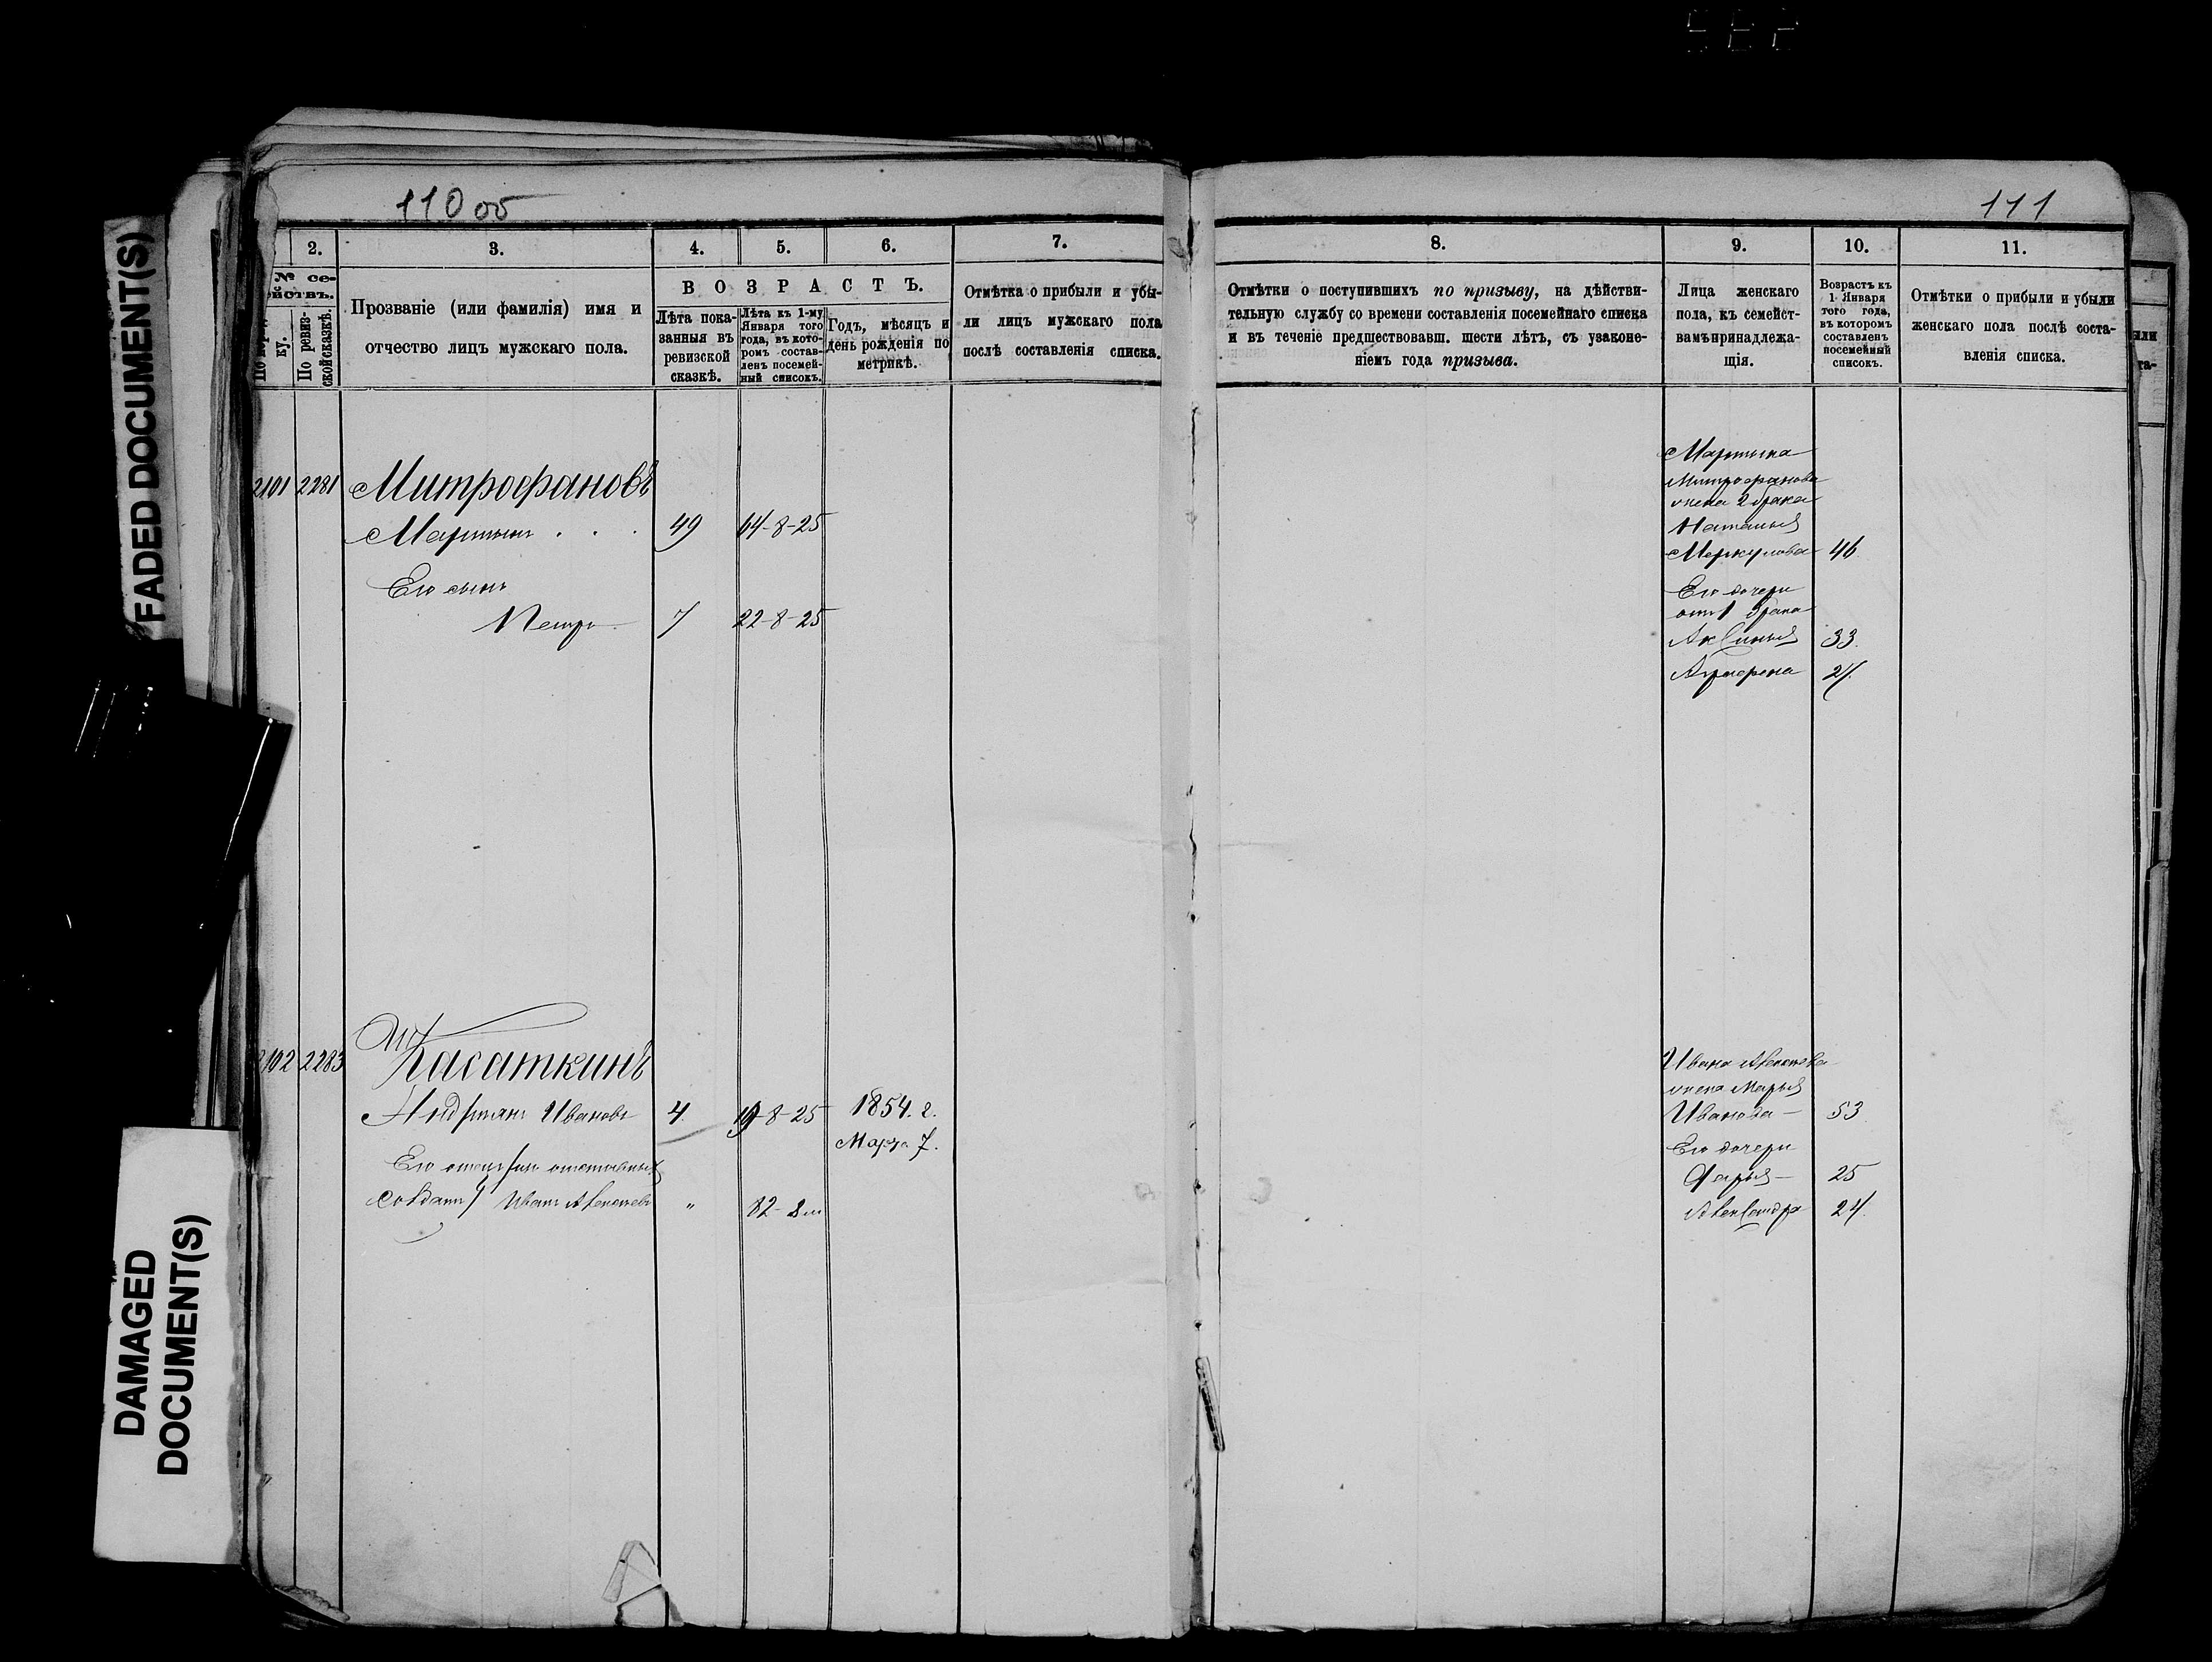 110 об
111
FADED DOCUMENT(S)
DAMAGED
DOCUMENT(S)
2.
3.
4.
5.
6.
7.
№ се-
ействъ.
ку.
По ревиз-
ской сказкѣ.
Прозваніе (или фамилія) имя и
отчество лицъ мужскаго пола.
ВОЗРАСТЪ.
Лѣта пока-
занныя въ
ревизской
сказкѣ.
Лѣта къ 1-му
Января того
года, въ кото-
ромъ состав-
ленъ посемей-
ный списокъ.
Годъ, мѣсяцъ и
день рожденія по
метрикѣ.
Отмѣтка о прибыли и убы-
ли лицъ мужскаго пола
послѣ составленія списка.
2101 2281 Митрофановъ
Мартынъ . . . 49 64-8-25
Его сынъ
Петръ 7 22-8-25
2102 2283 Касаткинъ
Андрианъ Ивановъ 4. 19-8-25 1854. г.
Марта 7.
Его отецъ отставный
солдатъ) Иванъ " 82-8 м
8.
9.
10.
11.
Отмѣтки о поступившихъ по призыву, на дѣйстви-
тельную службу со времени составленія посемейнаго списка
и въ теченіе предшествовавш. шести лѣтъ, съ узаконе-
ніемъ года призыва.
Лица женскаго
пола, къ семейст-
вамъ принадлежа-
щія.
Возрастъ къ
1 Января
того года,
въ которомъ
составленъ
посемейный
списокъ.
Отмѣтки о прибыли и убыли
женскаго пола послѣ соста-
вленія списка.
Мартына
Митрофанова
жена 2 брака
Наталья
Меркулова 46
Его дочери
отъ 1 брака
Аксинья 33.
Аграфена 24.
Ивана
жена Марья
Иванова - 53
Его дочери
Дарья - 25
Александра 24.